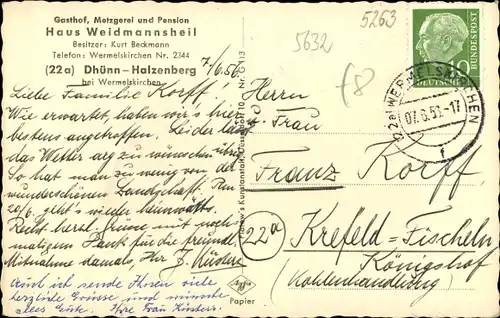 Gasthof, Metzgerei und Pension
Haus Weidmannsheil
Besitzer: Kurt Beckmann
Telefon: Wermelskirchen Nr. 2344
(22a) Dhünn-Halzenberg
bei Wermelskirchen
7/6.56.
Liebe Familie Korff!
Wie erwartet, haben wir's hier
bestens angetroffen. Leider läßt
das Wetter arg zu wünschen übrig.
So hat man zu wenig von der
wunderschönen Landschaft. Am
20/6. geht's wieder heimwärts.
Recht herzl. Grüsse mit noch-
maligem Dank für die freundl.
Mitnahme damals Ihr J. Küsters
Auch ich sende Ihnen viele
herzliche Grüsse und wünsche
alles Gute. Ihre Frau Küsters.
5263
5632
f8
10
DEUTSCHE BUNDESPOST
(22a) WERMELSKIRCHEN
-17
f
Herrn
u. Frau
Franz Korff,
22a
Krefeld-Fischeln
Königshof
(Kohlenhandlung)
Agfa
Papier